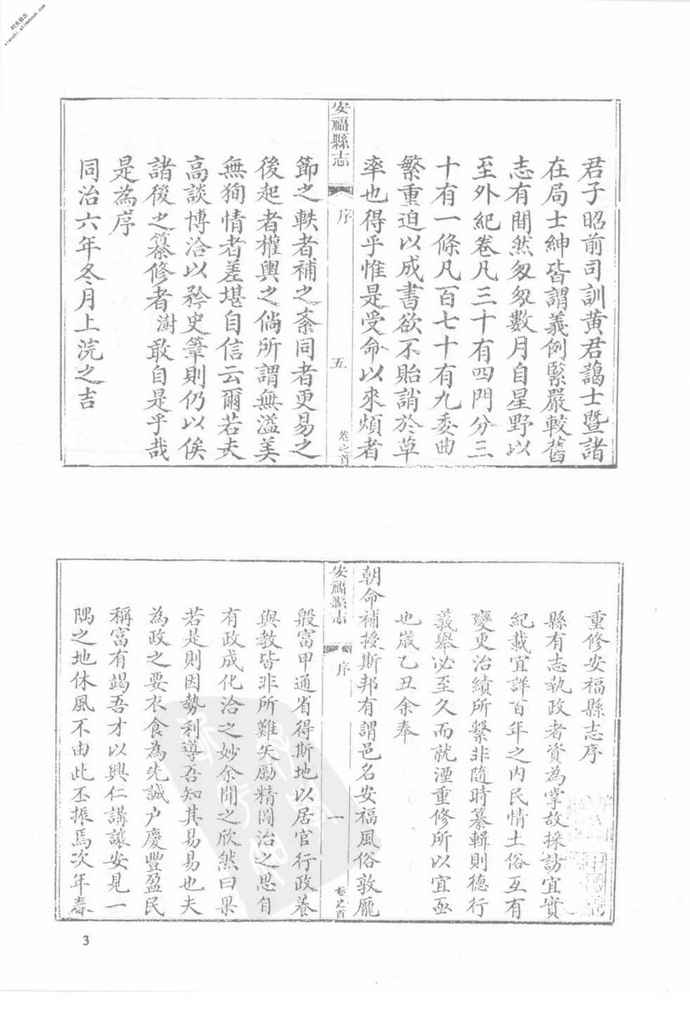 君子昭前司訓黃君藹士暨諸
在局士紳皆謂義例緊嚴較舊
志有間然匆匆數月自星野以
至外紀卷凡三十有四門分三
十有一條凡百七十有九委曲
繁重迫以成書欲不貽誚於草
率也得乎惟是受命以來煩者
安福縣志
序
五
卷之首
節之軼者補之紊同者更易之
後起者權輿之倘所謂無溢美
無狥情者差堪自信云爾若夫
高談博洽以矜史筆則仍以俟
諸後之纂修者澍敢自是乎哉
是為序
同治六年冬月上浣之吉
重修安福縣志序
縣有志執政者資為掌故採訪宜實
紀載宜詳百年之內民情土俗互有
變更治績所繫非隨時纂輯則德行
義舉必至久而就湮重修所以宜亟
也歲乙丑余奉
朝命補授斯邦有謂邑名安福風俗敦龐
安福縣志
序
一
卷之首
殷富甲通省得斯地以居官行政養
與教皆非所難矣勵精圖治之思自
有政成化洽之妙余聞之欣然曰果
若是則因勢利導吾知其易易也夫
為政之要衣食為先誠戶慶豐盈民
稱富有竭吾才以興仁講讓安見一
隅之地休風不由此丕振焉次年春
3